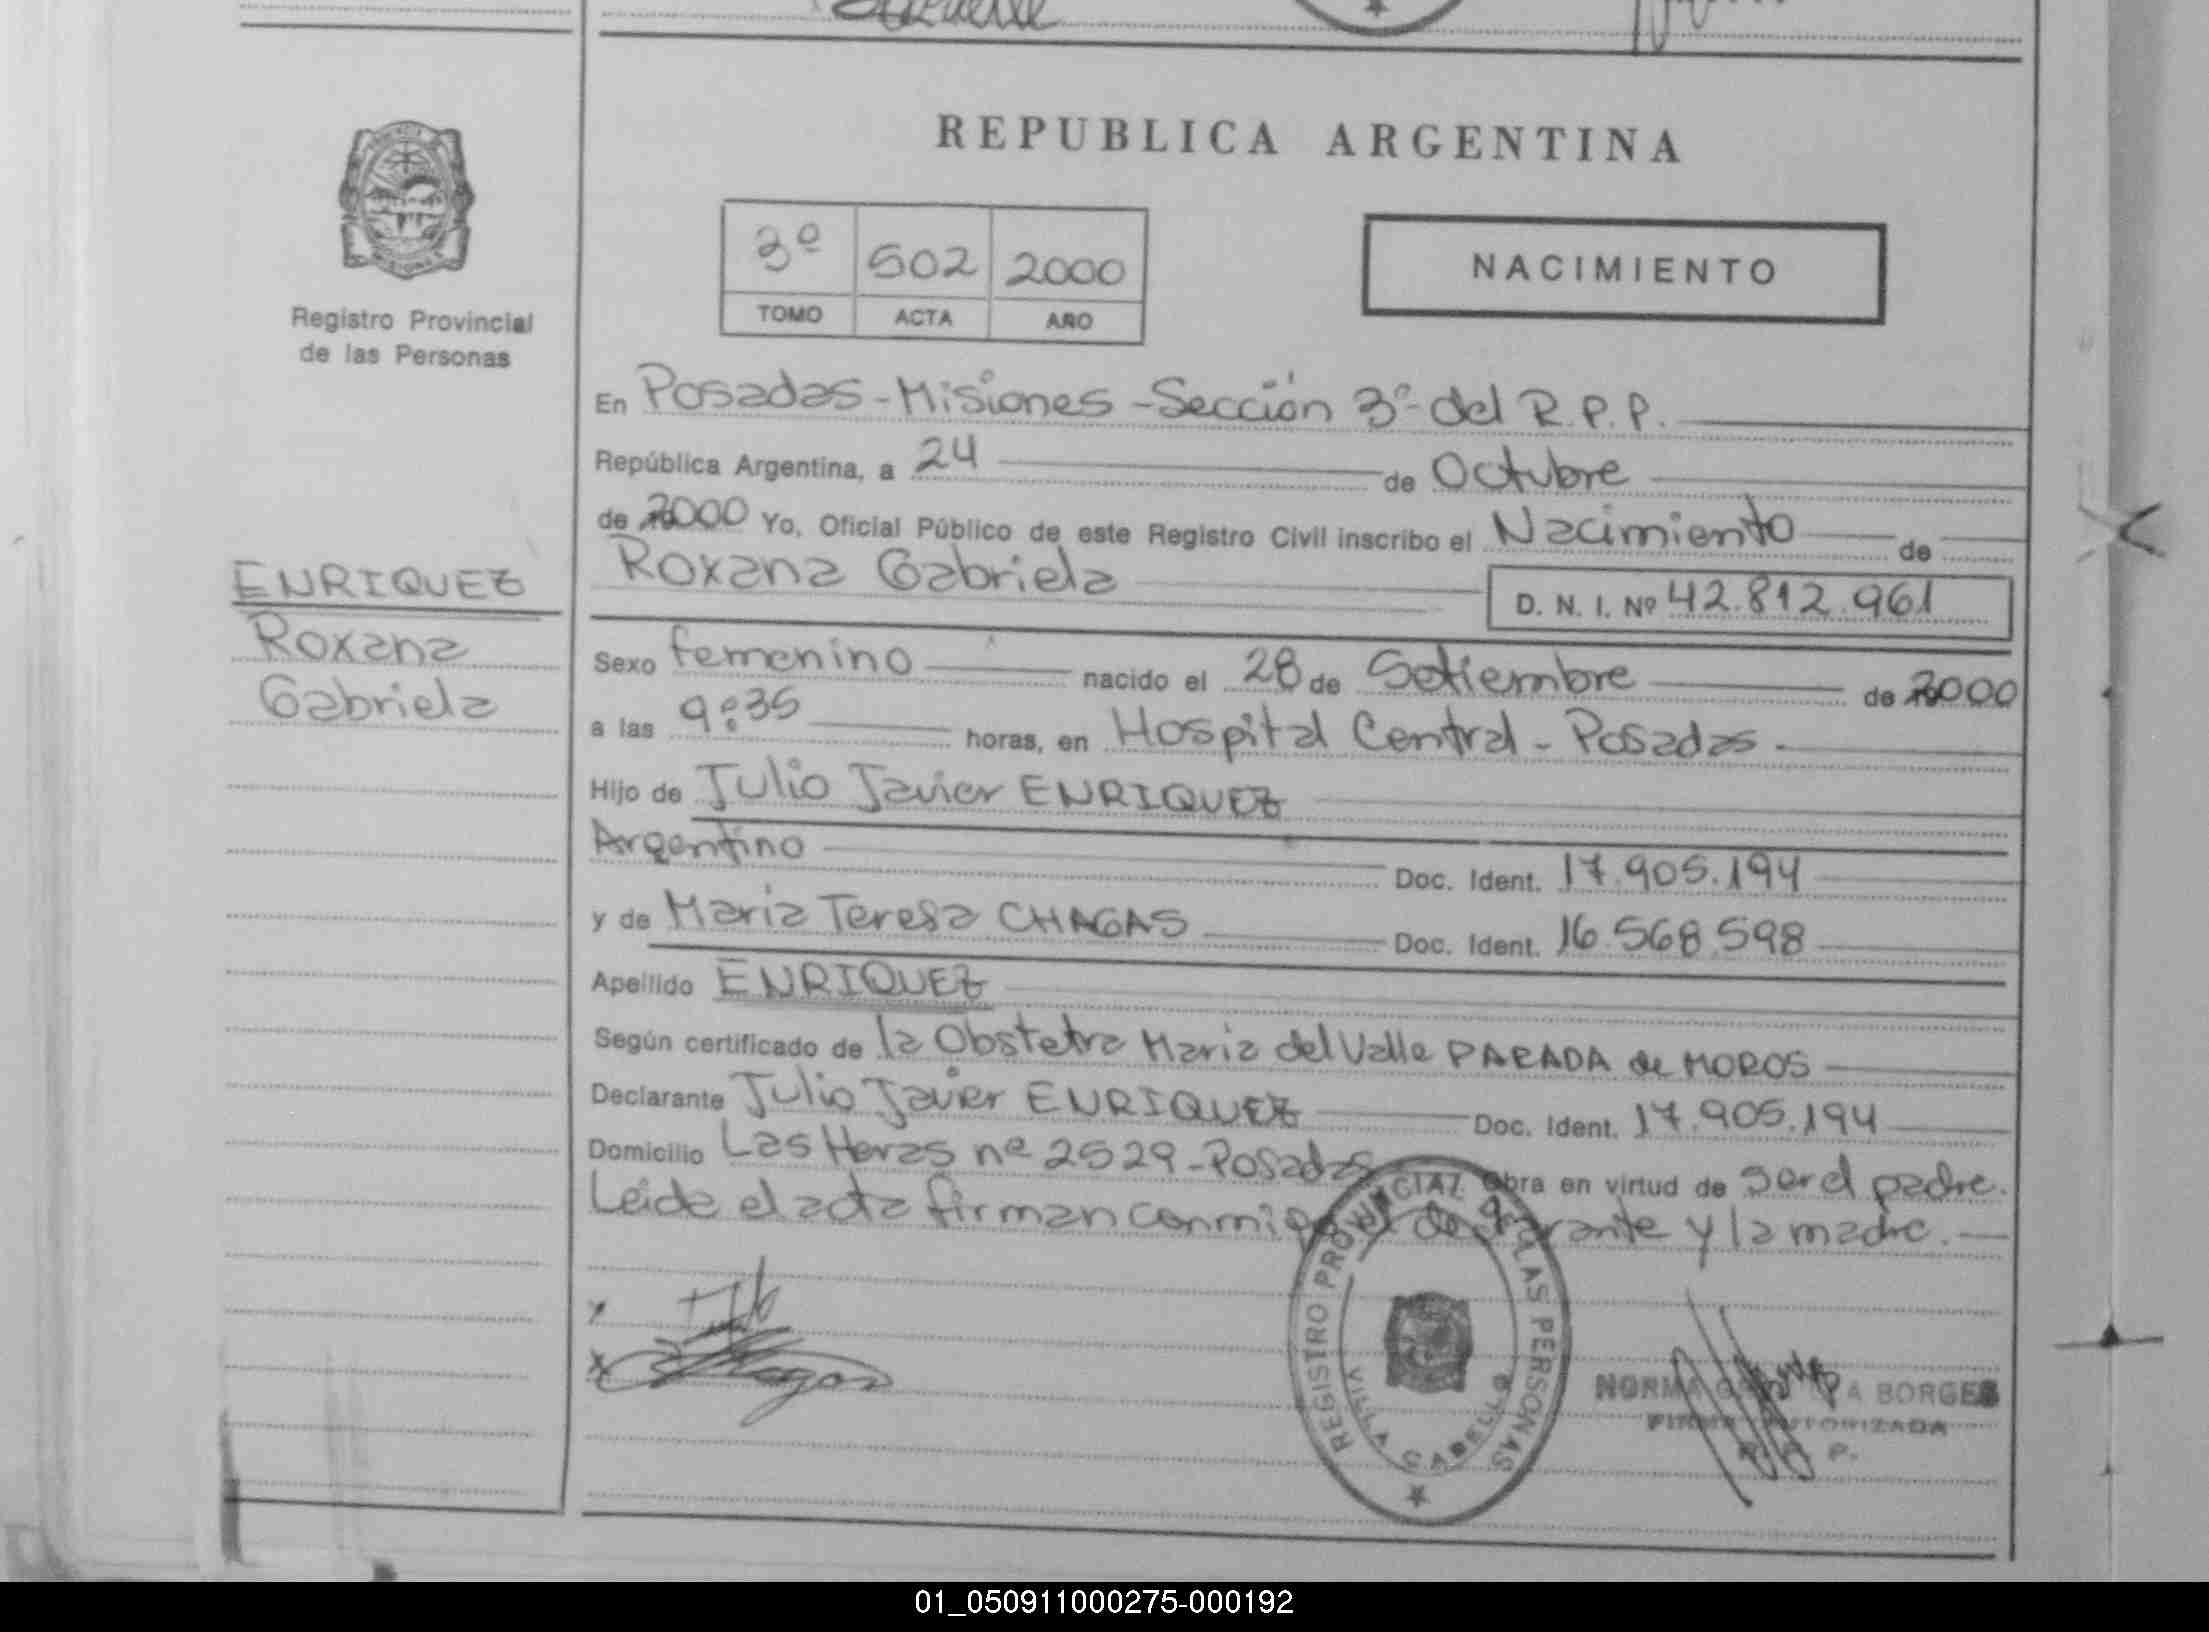 REPUBLICA ARGENTINA
Registro Provincial
de las Personas
3º 502 2000
TOMO ACTA AÑO
NACIMIENTO
ENRIQUEZ
Roxana
Gabriela
En Posadas-Misiones-Sección 3º del R.P.P.
República Argentina, a 24 de Octubre
de 2000 Yo, Oficial Público de este Registro Civil inscribo el Nacimiento de
Roxana Gabriela D. N. I. Nº 42.812.961
Sexo femenino nacido el 28 de Setiembre de 2000
a las 9:35 horas, en Hospital Central - Posadas.
Hijo de Julio Javier ENRIQUEZ
Argentino Doc. Ident. 17.905.194
y de Maria Teresa CHAGAS Doc. Ident. 16.568.598
Apellido ENRIQUEZ
Según certificado de la Obstetra Maria del Valle PARADA de MOROS
Declarante Julio Javier ENRIQUEZ Doc. Ident. 17.905.194
Domicilio Las Heras nº 2529-Posadas Obra en virtud de ser el padre.
Leida el acta firman conmigo el declarante y la madre.
REGISTRO PROVINCIAL DE LAS PERSONAS
VILLA CABELLO
NORMA BORGES
FIRMA AUTORIZADA
R. P. P.
01_050911000275-000192